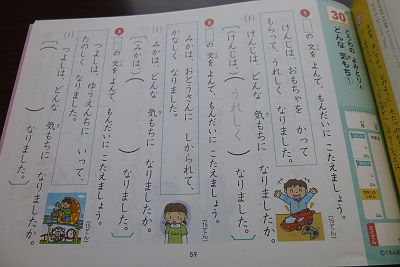 30
どんな 気もち①
1 の 文を よんで、もんだいに こたえましょう。
けんじは、おもちゃを かって
もらって、うれしく なりました。
(1) けんじは、どんな 気もちに なりましたか。
(けんじは、)( うれしく ) なりました。
2 の 文を よんで、もんだいに こたえましょう。
みかは、おとうさんに しかられて、
かなしく なりました。
(1) みかは、どんな 気もちに なりましたか。
(みかは、)( ) なりました。
3 の 文を よんで、もんだいに こたえましょう。
つよしは、ゆうえんちに いって、
たのしく なりました。
(1) つよしは、どんな 気もちに なりましたか。
( )( ) なりました。
59